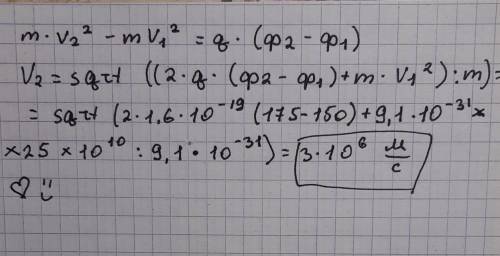 m · V₂² - mV₁² = q · (φ2 - φ1)
V₂ = sqrt ((2 · q · (φ2 - φ1) + m · V₁²) : m) =
= sqrt (2 · 1,6 · 10⁻¹⁹ (175 - 150) + 9,1 · 10⁻³¹ ×
× 25 × 10¹⁰ : 9,1 · 10⁻³¹) = 3 · 10⁶ м/с